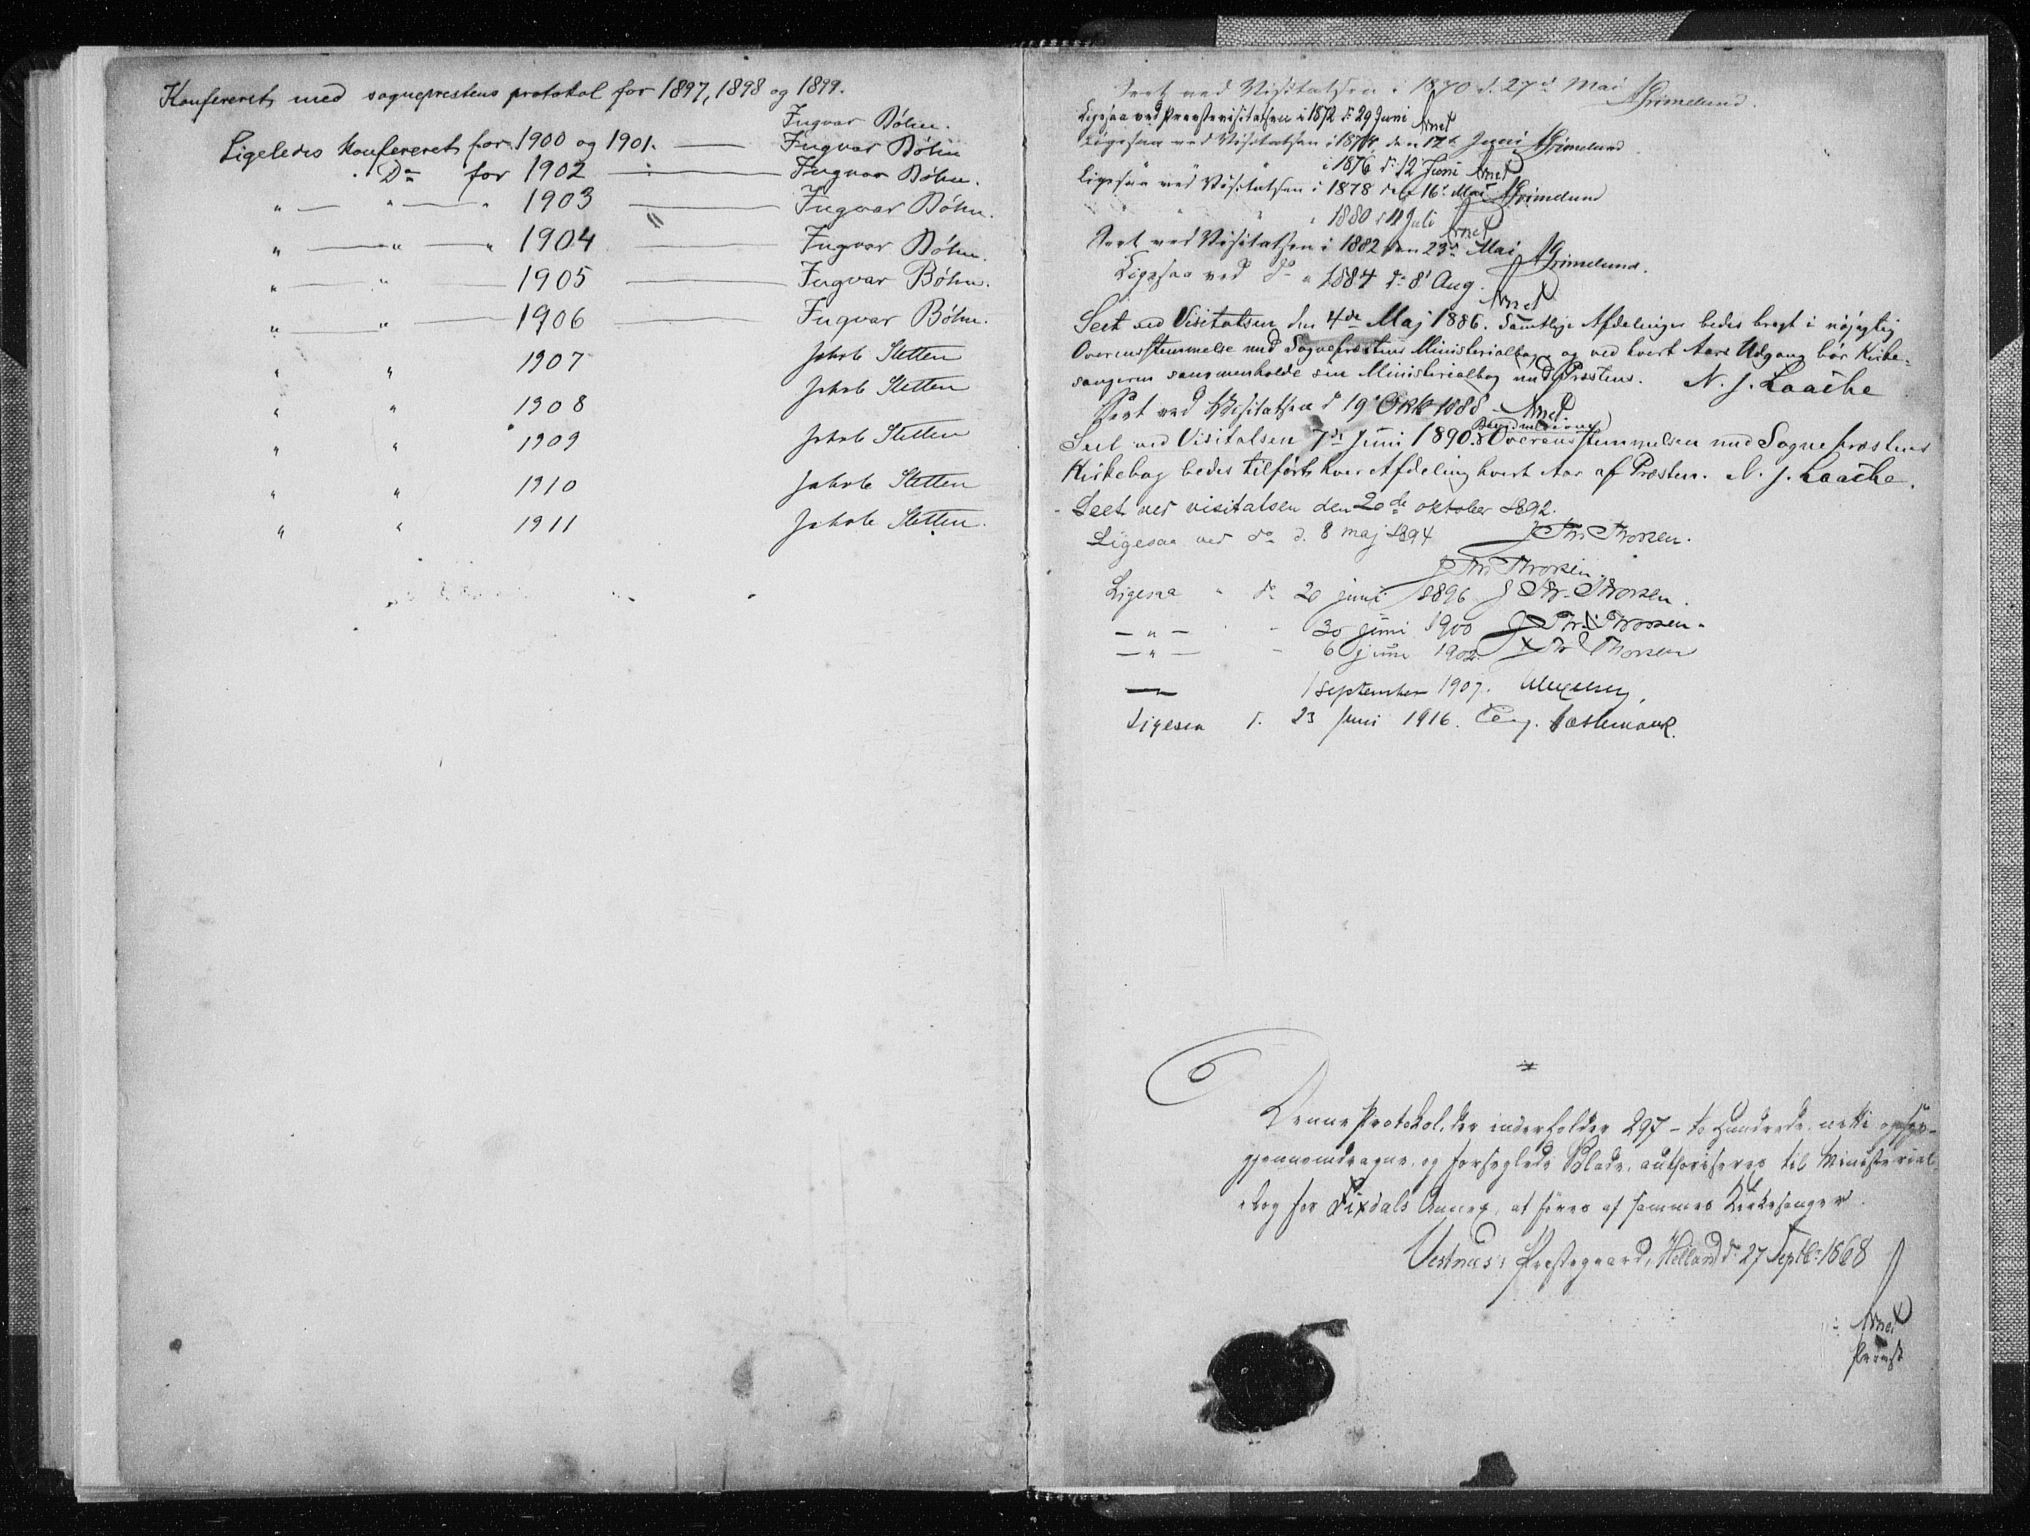 Konfereret med sogneprestens protokol for 1897, 1898 og 1899.
Ingvar Bøhn.
Ligeledes konfereret for 1900 og 1901. — Ingvar Bøhn
Do for 1902 — Ingvar Bøhn.
" — " — " 1903 — Ingvar Bøhn.
" — " — " 1904 — Ingvar Bøhn.
" — " — 1905 — Ingvar Bøhn.
" — " — 1906 — Ingvar Bøhn.
" " 1907 Jakob Stetten
" " 1908 Jakob Stetten
" " 1909 Jakob Stetten
" " 1910 Jakob Stetten
" " 1911 Jakob Stetten.
Seet ved Visitatsen i 1870 d. 27de Mai Grimelund.
Ligesaa ved Provstevisitatsen i 1872 d: 29 Juni Arnet
Ligesaa ved Visitatsen i 1874 den 12te Juni Grimelund
" i 1876 d: 12 Juni Arnet
Ligesaa ved Visitatsen i 1878 den 16de Mai Grimelund
" " " i 1880 d 11 Juli Arnet
Seet ved Visitatsen i 1882 den 23de Mai Grimelund.
Ligesaa ved do " 1884 d: 8' Aug. Arnet
Seet ved Visitatsen den 4de Maj 1886. Samtlige Afdelinger bedes bragt i nøjagtig
Overensstemmelse med Sognepræstens Ministerialbog, og ved hvert Aars Udgang bør Kirke-
sangeren sammenholde sin Ministerialbog med Præstens. N. J. Laache
Seet ved Visitatsen d 19' Okt 1888 - Arnet.
Seet ved Visitatsen 7de Juni 1890. Overensstemmelsen med Sognepræstens
Kirkebog bedes tilført hver Afdeling hvert Aar af Præsten. N. J. Laache.
Seet ved visitatsen den 20de oktober 1892.
J Chr Thorsen.
Ligesaa ved do d. 8 maj 1894
J Chr Thorsen.
Ligesaa " do 20 juni 1896 J Chr. Thorsen.
— " — - 30 juni 1900 J Chr. Thorsen.
— " — - 6 juni 1902. J Chr Thorsen
— 1 september 1907.
Ligesaa d. 23 juni 1916.
Denne Protokol, der indeholder 297 - to Hundrede, nitti og syv -
gjennemdragne og forseglede Blade, authoriseres til Ministerial-
bog for Fixdals Annex, at føres af sammes Kirkesanger.
Vestnæs Præstegaard, Helland d: 27 Septbr 1868
Arnet
Provst